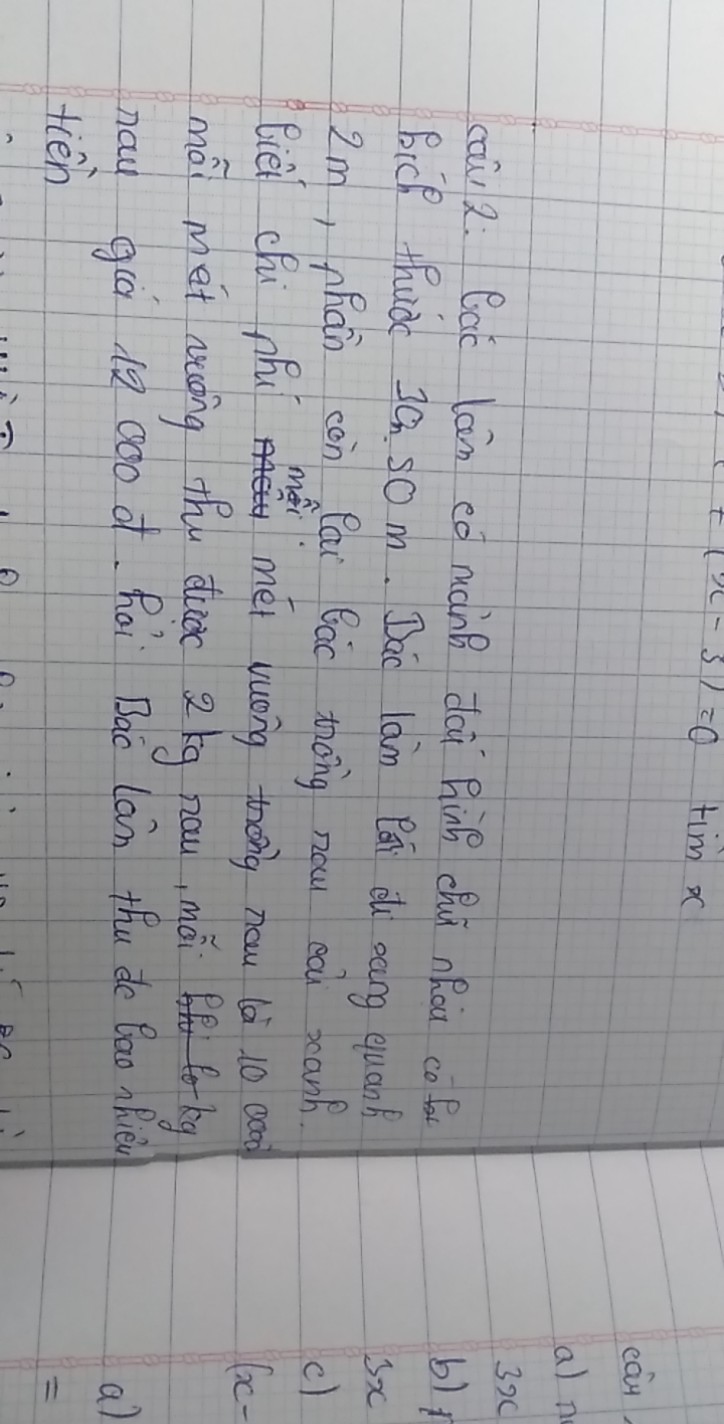 (x - 3) = 0 tìm x
câu 2: bác lân có mảnh đất hình chữ nhật có
kích thước 30. 50 m. Bác làm lối đi xung quanh
2m, phần còn lại bác trồng rau cải xanh.
biết chi phí mỗi mét vuông trồng rau là 10 000
mỗi mét vuông thu được 2 kg rau, mỗi kg
rau giá 12 000 đ. hỏi Bác lân thu đc bao nhiêu
tiền
câu
a)
3x
b)
3x
c)
(x -
a)
=